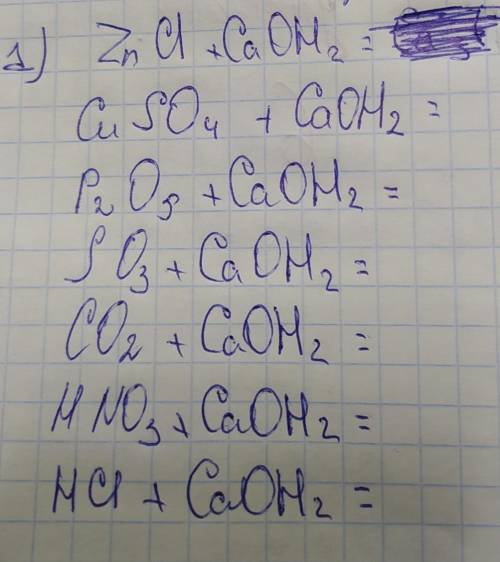 1) ZnCl + CaOH2 =
CuSO4 + CaOH2 =
P2O5 + CaOH2 =
SO3 + CaOH2 =
CO2 + CaOH2 =
HNO3 + CaOH2 =
HCl + CaOH2 =